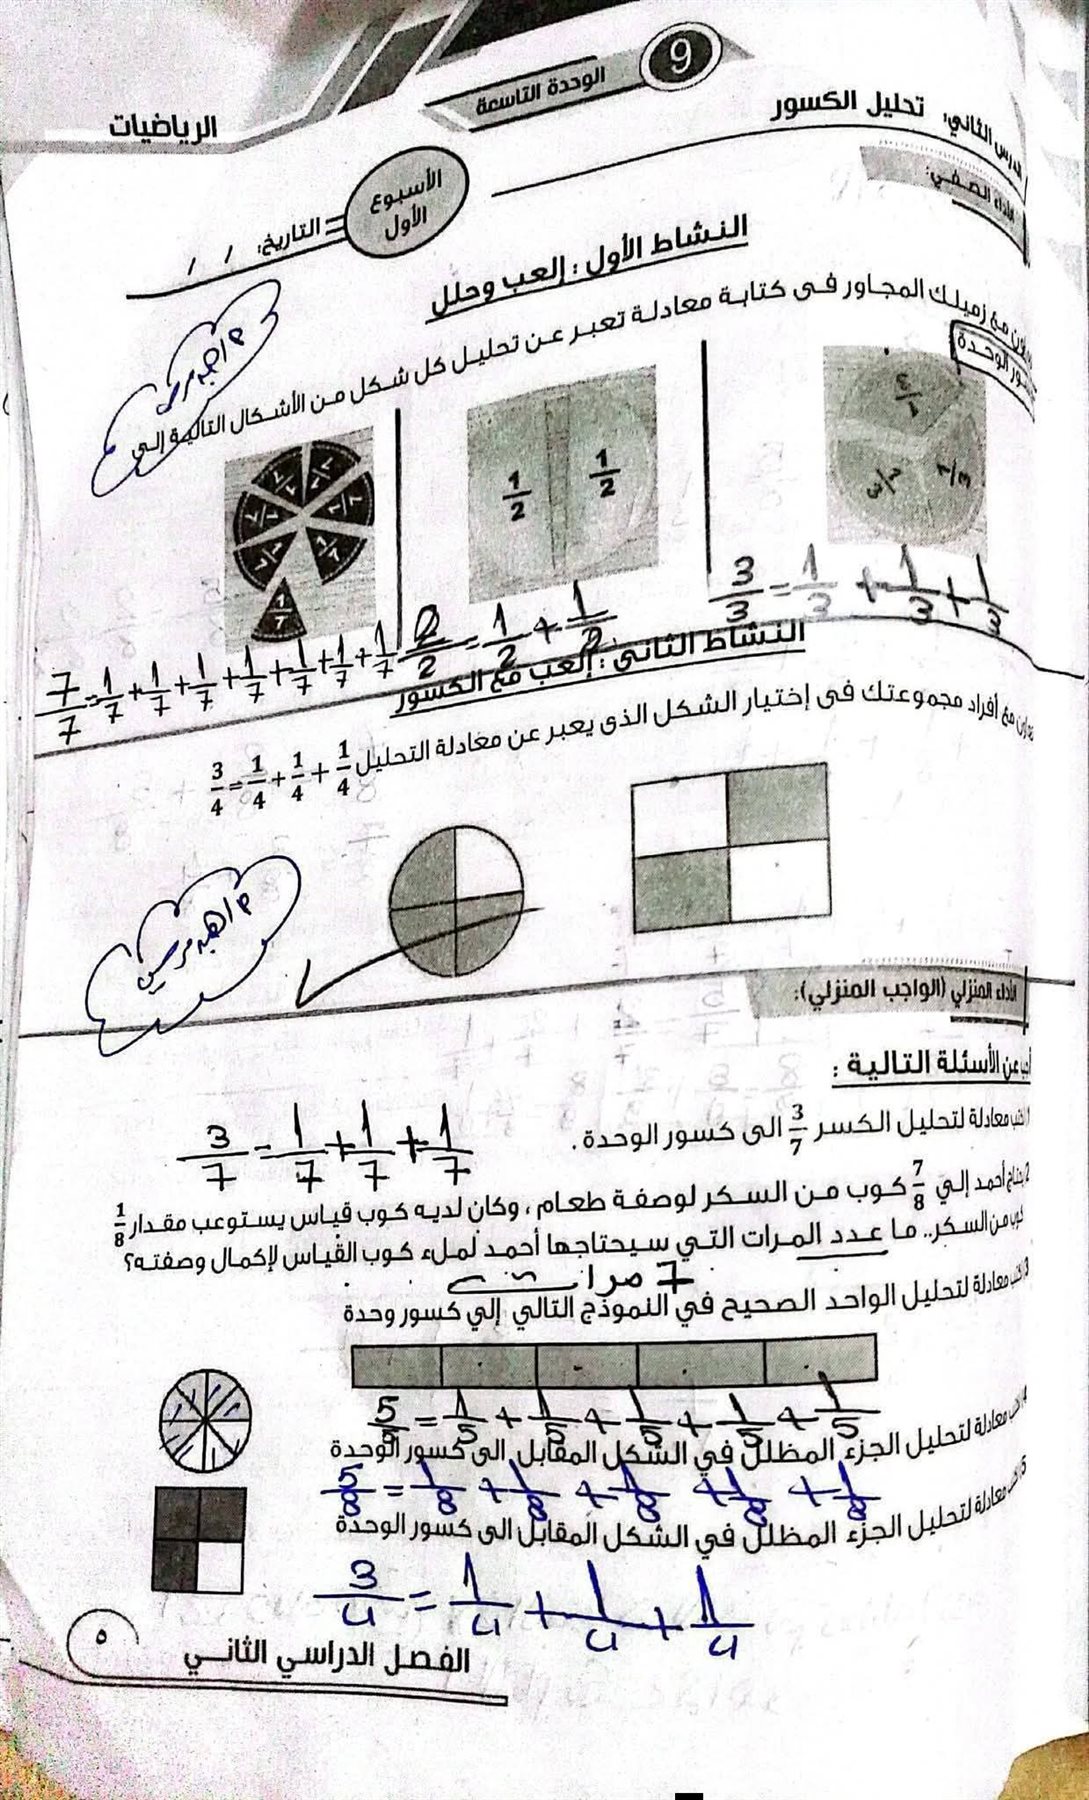 9
الوحدة التاسعة
الدرس الثاني: تحليل الكسور
الرياضيات
الأداء الصفي:
الأسبوع الأول
التاريخ: / /
النشاط الأول : إلعب وحلل
مع زميلك المجاور فى كتابة معادلة تعبر عن تحليل كل شكل من الأشكال التالية إلى
كسور الوحدة
1/3 1/3 1/3
1/2 1/2
1/7 1/7 1/7 1/7 1/7 1/7 1/7
3/3 = 1/3 + 1/3 + 1/3
2/2 = 1/2 + 1/2
7/7 = 1/7 + 1/7 + 1/7 + 1/7 + 1/7 + 1/7 + 1/7
النشاط الثانى : إلعب مع الكسور
تعاون مع أفراد مجموعتك فى إختيار الشكل الذى يعبر عن معادلة التحليل 3/4 = 1/4 + 1/4 + 1/4
الأداء المنزلي (الواجب المنزلي):
أجب عن الأسئلة التالية :
1) اكتب معادلة لتحليل الكسر 3/7 الى كسور الوحدة .
3/7 = 1/7 + 1/7 + 1/7
2) يحتاج أحمد إلي 7/8 كوب من السكر لوصفة طعام ، وكان لديه كوب قياس يستوعب مقدار 1/8
كوب من السكر.. ما عدد المرات التي سيحتاجها أحمد لملء كوب القياس لإكمال وصفته؟
7 مرات
3) اكتب معادلة لتحليل الواحد الصحيح في النموذج التالي إلي كسور وحدة
5/5 = 1/5 + 1/5 + 1/5 + 1/5 + 1/5
4) اكتب معادلة لتحليل الجزء المظلل في الشكل المقابل الى كسور الوحدة
5/8 = 1/8 + 1/8 + 1/8 + 1/8 + 1/8
5) اكتب معادلة لتحليل الجزء المظلل في الشكل المقابل الى كسور الوحدة
3/4 = 1/4 + 1/4 + 1/4
الفصل الدراسي الثاني
٥